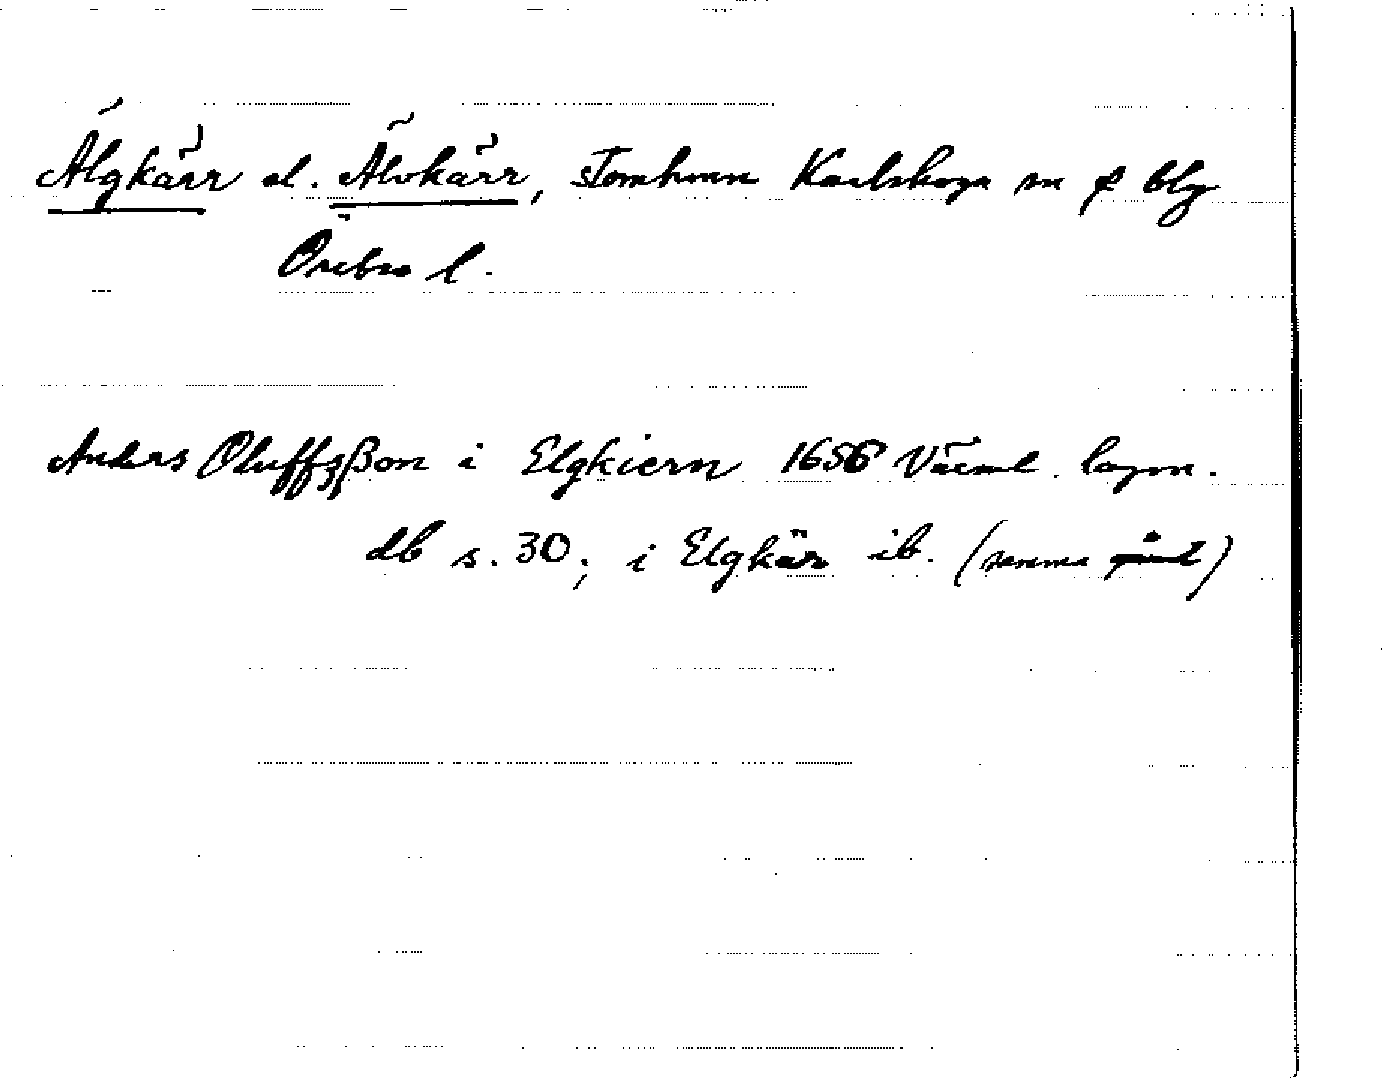 Älgkärr el. Älvkärr, stomhemn Karlskoga sn o blg
Örebro l.
Anders Oluffzßon i Elgkiern 1656 Värml. lagm.
db s. 30; i Elgkär ib. (samma